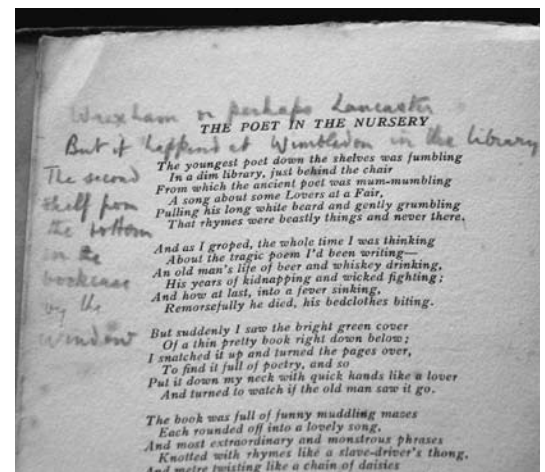 Wrexham or perhaps Lancaster
THE POET IN THE NURSERY
But it happend at Wimbledon in the library
The second
shelf from
the bottom
in the
bookcase
by the
window
The youngest poet down the shelves was fumbling
In a dim library, just behind the chair
From which the ancient poet was mum-mumbling
A song about some Lovers at a Fair,
Pulling his long white beard and gently grumbling
That rhymes were beastly things and never there.
And as I groped, the whole time I was thinking
About the tragic poem I'd been writing—
An old man's life of beer and whiskey drinking,
His years of kidnapping and wicked fighting;
And how at last, into a fever sinking,
Remorsefully he died, his bedclothes biting.
But suddenly I saw the bright green cover
Of a thin pretty book right down below;
I snatched it up and turned the pages over,
To find it full of poetry, and so
Put it down my neck with quick hands like a lover
And turned to watch if the old man saw it go.
The book was full of funny muddling mazes
Each rounded off into a lovely song,
And most extraordinary and monstrous phrases
Knotted with rhymes like a slave-driver's thong,
And metre twisting like a chain of daisies